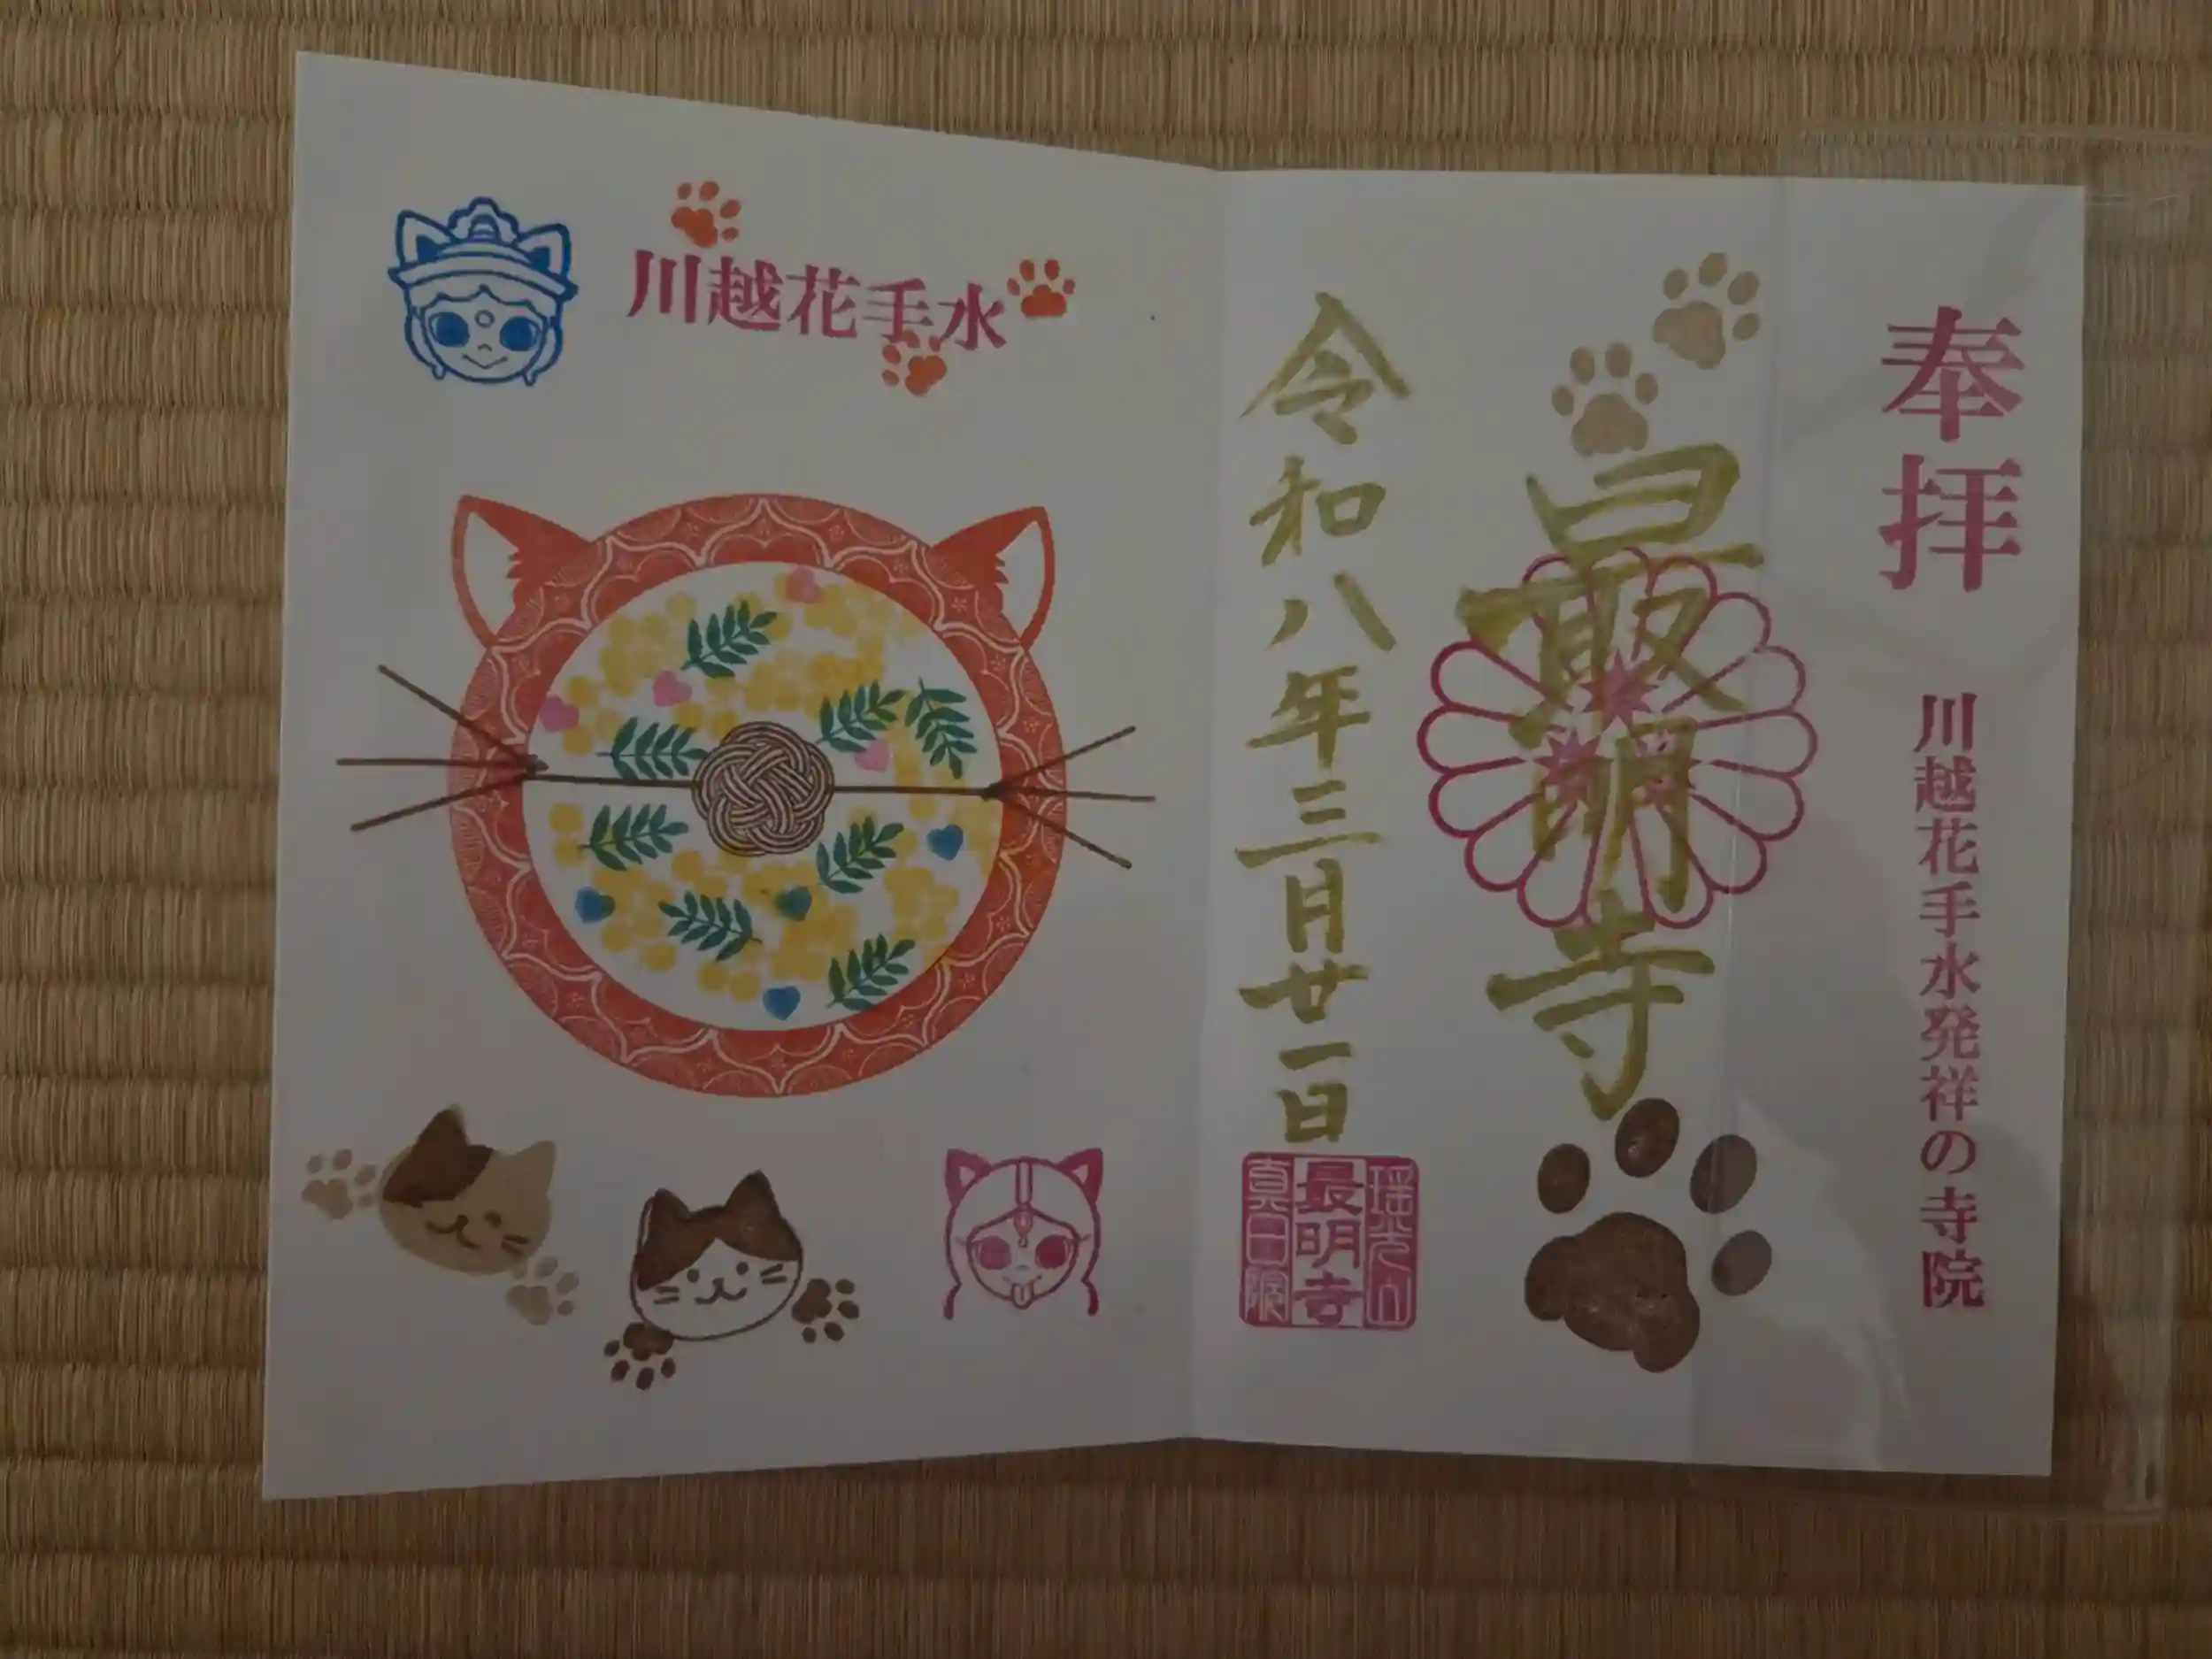 奉拝
川越花手水発祥の寺院
最明寺
令和八年三月廿一日
瑶光山
最明寺
真日院
川越花手水